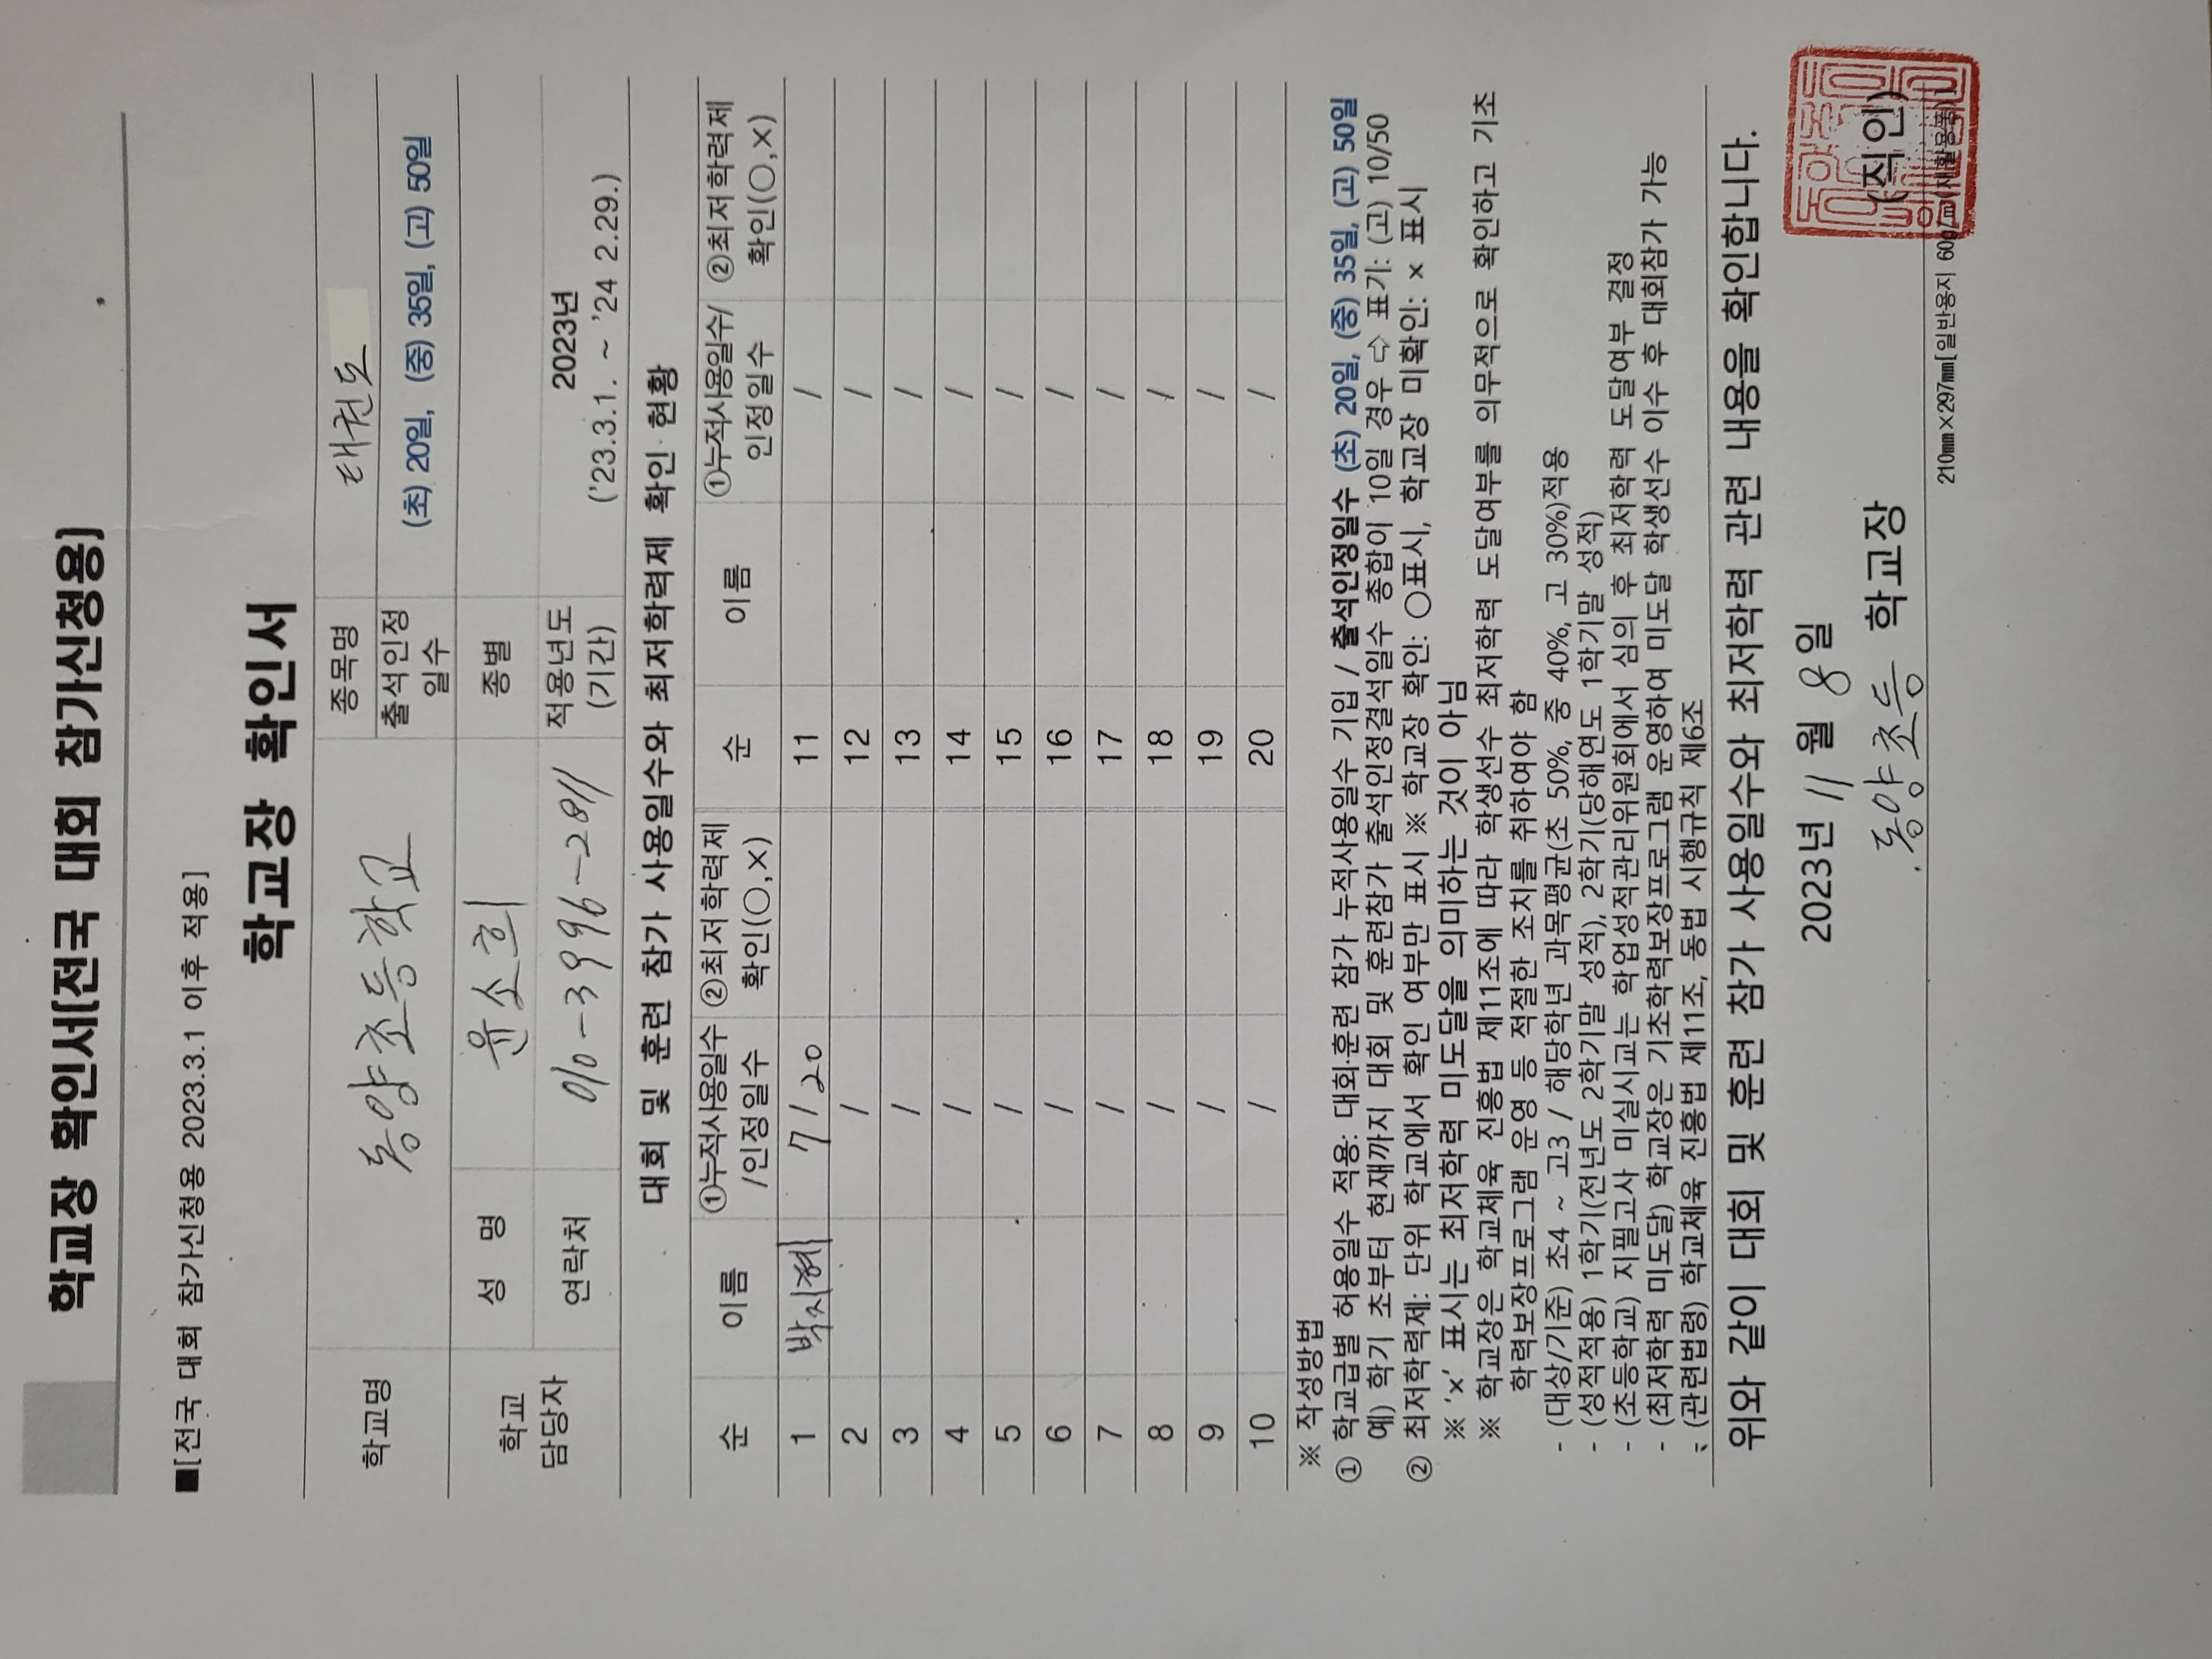 학교장 확인서[전국 대회 참가신청용]
■[전국 대회 참가신청용 2023.3.1 이후 적용]
학교장 확인서
학교명 동양초등학교 종목명 태권도
출석인정일수 (초) 20일, (중) 35일, (고) 50일
학교 담당자 성 명 윤소희 종별
연락처 010-3996-2811 적용년도(기간) 2023년 ('23.3.1. ~ '24 2.29.)
대회 및 훈련 참가 사용일수와 최저학력제 확인 현황
순 이름 ①누적사용일수/인정일수 ②최저학력제 확인(○,×) 순 이름 ①누적사용일수/인정일수 ②최저학력제 확인(○,×)
1 박지혜 7/20 11 /
2 / 12 /
3 / 13 /
4 / 14 /
5 / 15 /
6 / 16 /
7 / 17 /
8 / 18 /
9 / 19 /
10 / 20 /
※ 작성방법
① 학교급별 허용일수 적용: 대회·훈련 참가 누적사용일수 기입 / 출석인정일수 (초) 20일, (중) 35일, (고) 50일
예) 학기 초부터 현재까지 대회 및 훈련참가 출석인정결석일수 총합이 10일 경우 ⇨ 표기: (고) 10/50
② 최저학력제: 단위 학교에서 확인 여부만 표시 ※ 학교장 확인: ○표시, 학교장 미확인: × 표시
※ '×' 표시는 최저학력 미도달을 의미하는 것이 아님
※ 학교장은 학교체육 진흥법 제11조에 따라 학생선수 최저학력 도달여부를 의무적으로 확인하고 기초
학력보장프로그램 운영 등 적절한 조치를 취하여야 함
- (대상/기준) 초4 ~ 고3 / 해당학년 과목평균(초 50%, 중 40%, 고 30%)적용
- (성적적용) 1학기(전년도 2학기말 성적), 2학기(당해연도 1학기말 성적)
- (초등학교) 지필고사 미실시교는 학업성적관리위원회에서 심의 후 최저학력 도달여부 결정
- (최저학력 미도달) 학교장은 기초학력보장프로그램 운영하여 미도달 학생선수 이수 후 대회참가 가능
- (관련법령) 학교체육 진흥법 제11조, 동법 시행규칙 제6조
위와 같이 대회 및 훈련 참가 사용일수와 최저학력 관련 내용을 확인합니다.
2023년 11월 8일
동양초등 학교장 (직인)
210㎜×297㎜[일반용지 60g/㎡(재활용품)]